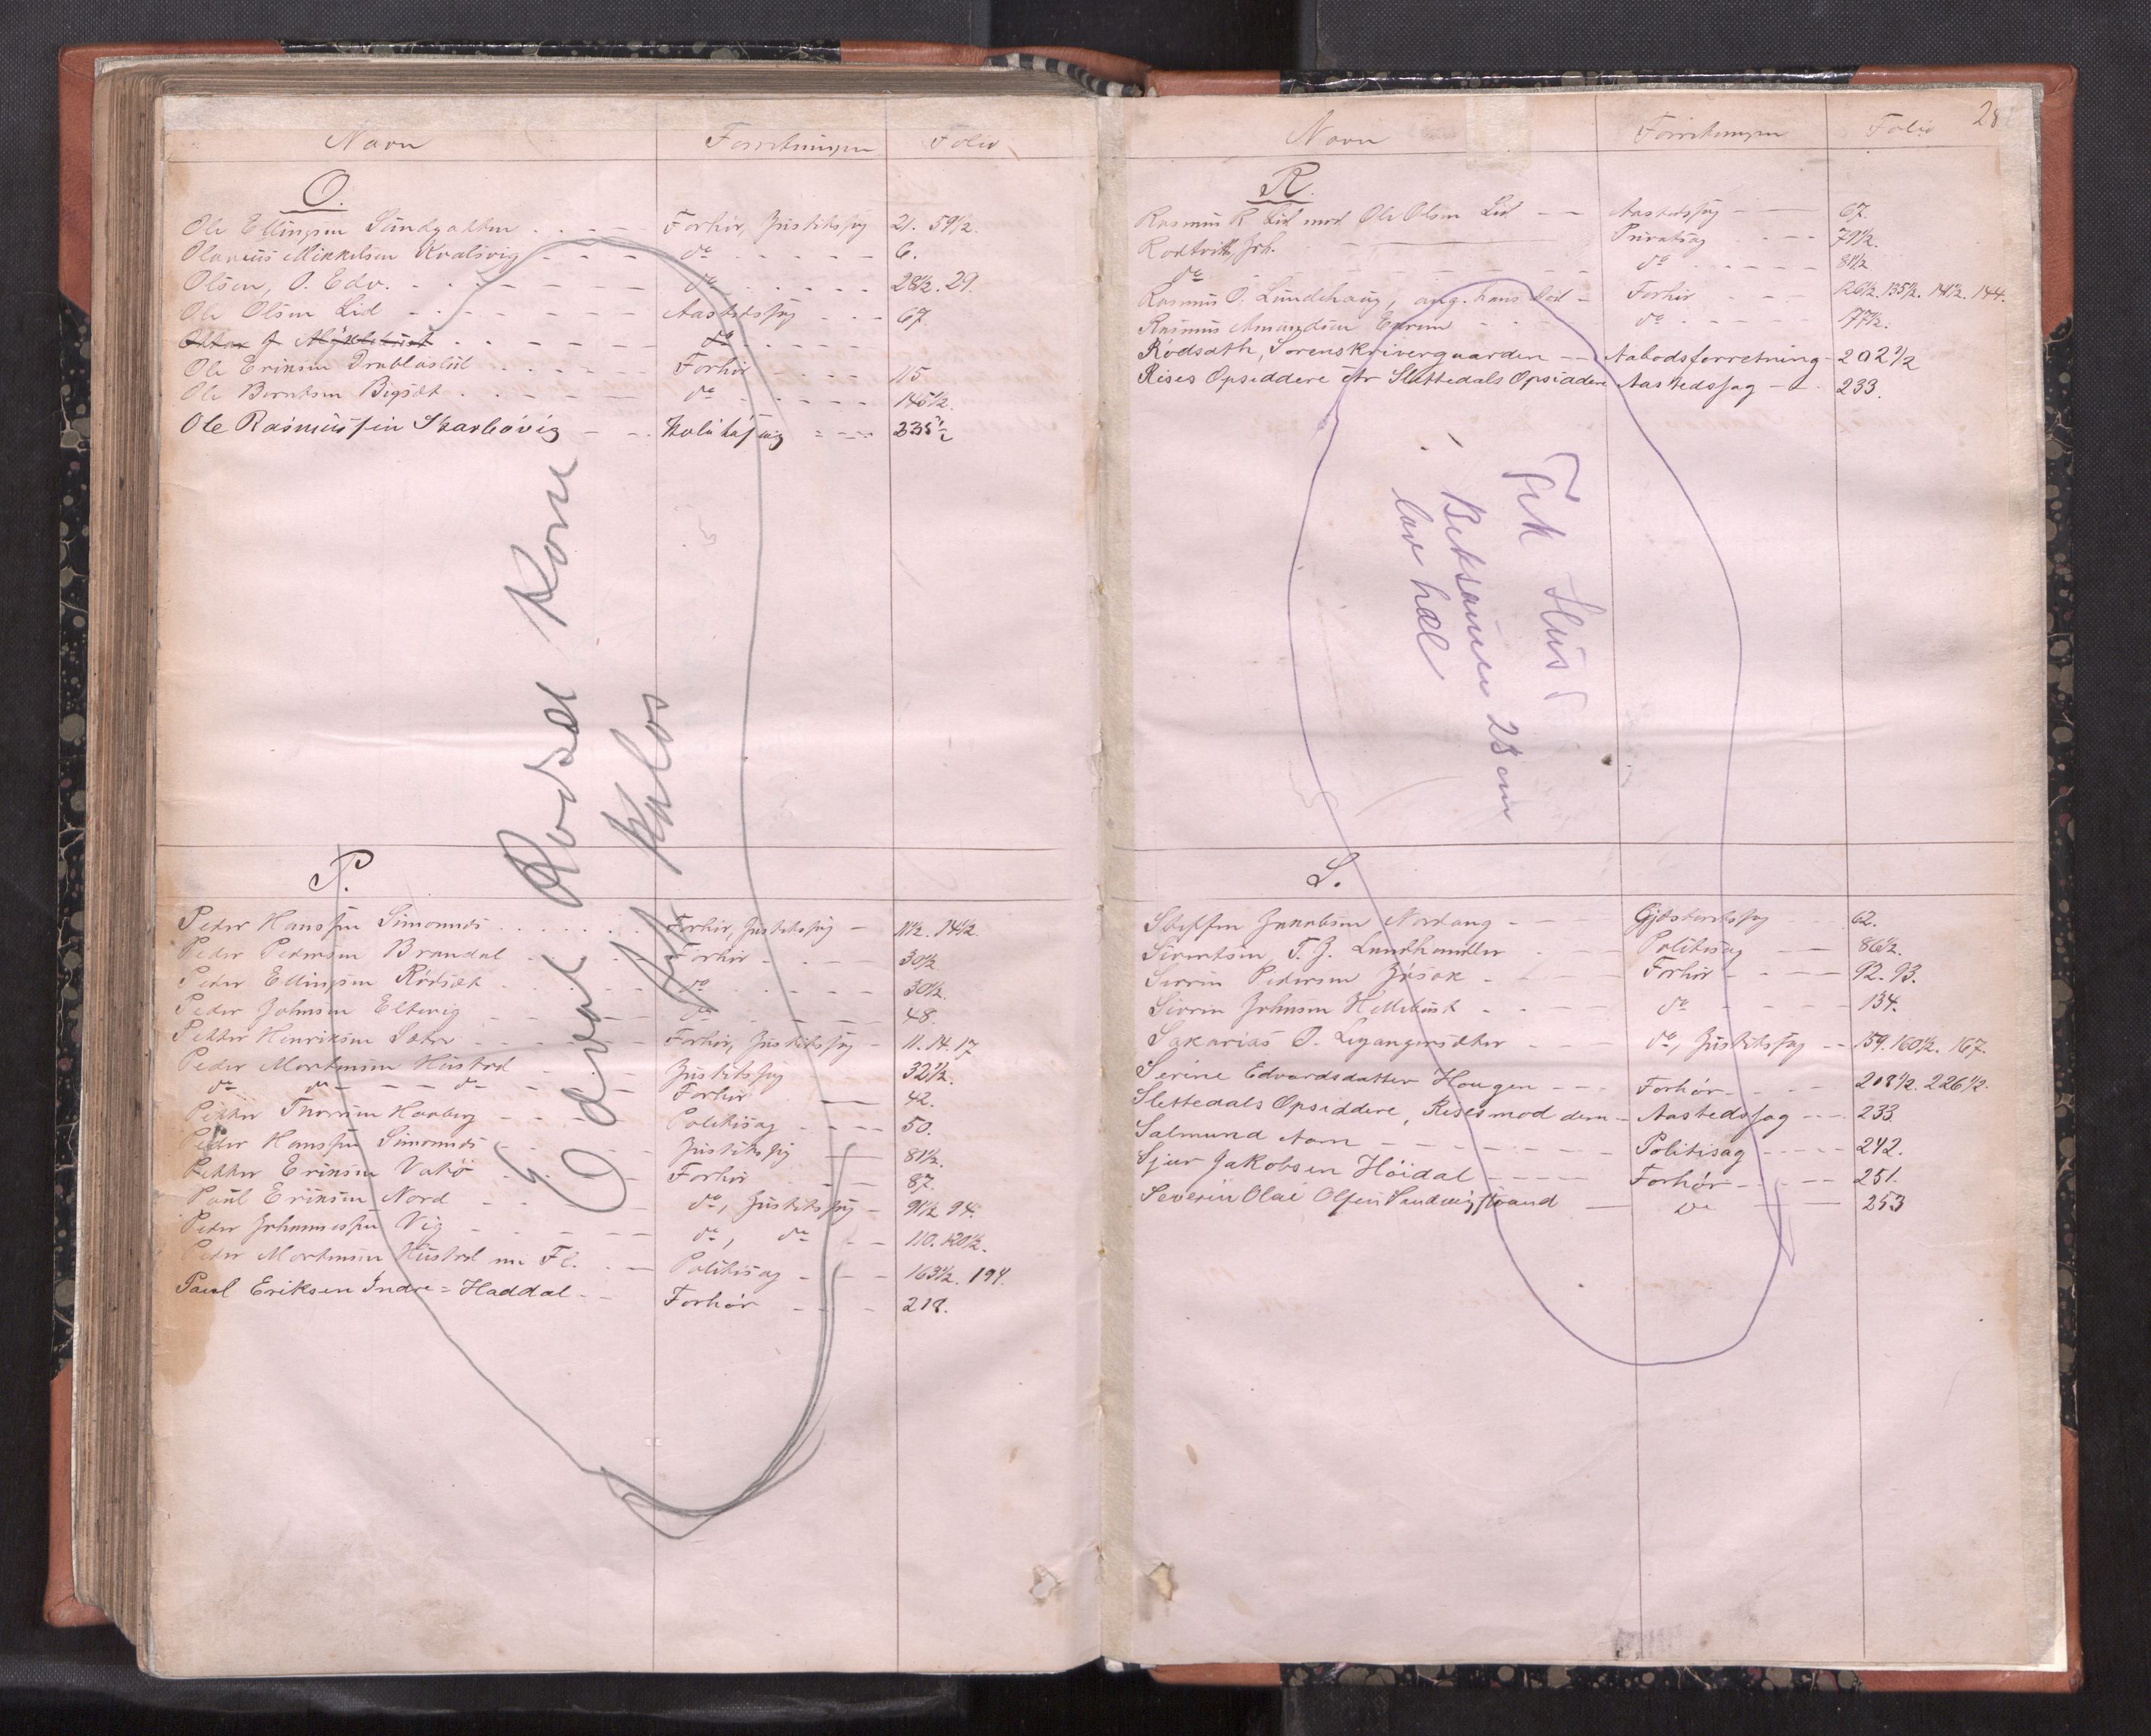 Navn Forretningen Folio
O.
Ole Ellingsen Sandgatten Forhör, Justitssag 21. 59½.
Olavius Mikkelsen Kvalsvig do 6.
Olsen, O. Edv. do 28½. 29.
Ole Olsen Lid Aastedssag 67.
do
Ole Eriksen Forhör 115
Ole Berntsen Bigset do 145½.
Ole Rasmussen Skarbövig 235½
Edvard Rodset Kone
fik Kalos
P.
Peder Hanssen Simonnæs Forhör, Justitssag 11½. 14½.
Peder Pedersen Brandal Forhör 30½
Peder Ellingsen Rödset do 30½.
Peder Johnsen Eltevig do 48.
Petter Henriksen Sætre Forhör, Justitssag 11. 14. 17
Peder Mortensen Hustad Justitssag 32½.
do do do Forhör 42.
Petter Thoresen Haaberg Politisag 50.
Peder Hanssen Simonnæs Justitssag 81½.
Petter Eriksen Vatö Forhör 87.
Paul Eriksen Nord do, Justitssag 91½. 94.
Peder Johannessen Vig do, do 110. 120½.
Peder Mortensen Hustad m. Fl. Politisag 163½. 194.
Paul Eriksen Indre=Haddal Forhör 218.
28
Navn Forretningen Folio
R.
Rasmus R. Lid mod Ole Olsen Lid Aastedssag 67.
Privatsag 79½.
do do 81½
Rasmus O. Lundehaug, ang. hans Död Forhör 126½. 135½. 141½. 144.
Rasmus Amundsen do 177½.
Rödsæth, Sorenskrivergaarden Nabodsforretning 202½
Rises Opsiddere ctr Slettedals Opsiddere Aastedssag 233.
Fik Hus
Beksaumer 28 cm
lav hæl
S.
Steffen Jakobsen Nordang Gjæsteretssag 62.
Sivertsen, T. J. Landhandler Politisag 86½.
Severin Pedersen Forhör 92. 93.
Severin Johnsen Hellebust do 134.
Sakarias O. Leganger do, Justitssag 159. 160½. 167.
Serine Edvardsdatter Hougen Forhör 218½. 226½.
Slettedals Opsiddere, Rises mod dem Aastedssag 233.
Salmund Aarn Politisag 242.
Sjur Jakobsen Höidal Forhör 251.
Severin Olai Olsen Sandvigstrand Do 253